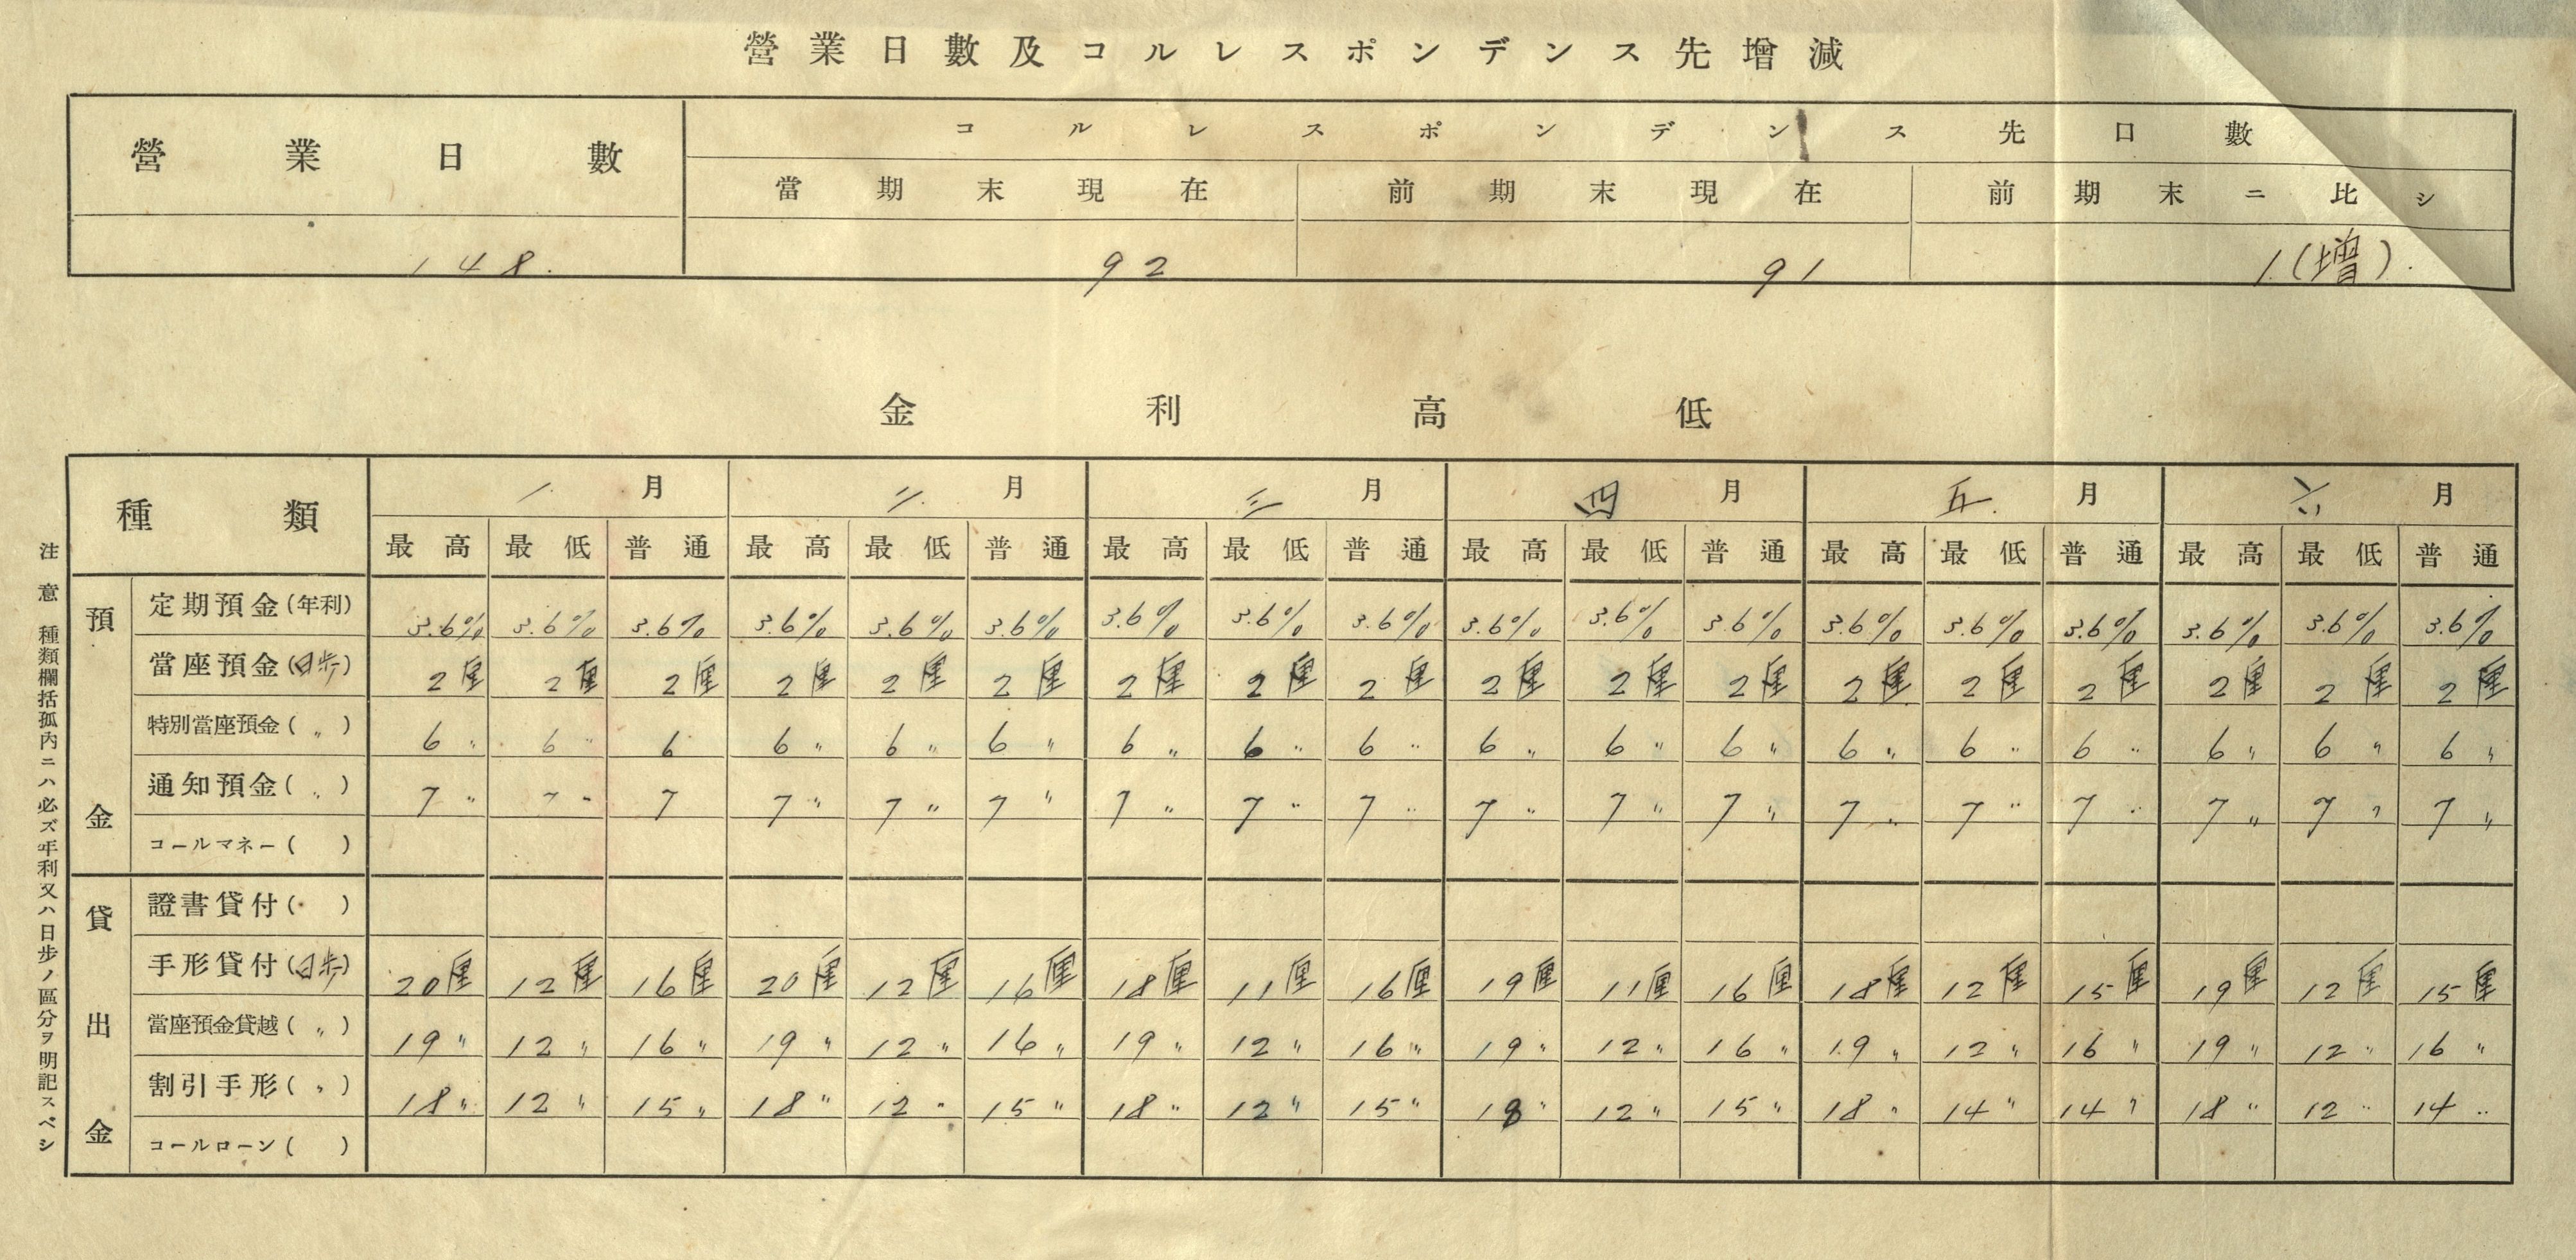 營業日數及コルレスポンデンス先增減
營業日數 コルレスポンデンス先口數
當期末現在 前期末現在 前期末ニ比シ
148. 92 91 1.(增).
金利高低
種類 一.月 二.月 三月 四月 五.月 六月
最高 最低 普通 最高 最低 普通 最高 最低 普通 最高 最低 普通 最高 最低 普通 最高 最低 普通
預金
定期預金(年利) 3.6% 3.6% 3.6% 3.6% 3.6% 3.6% 3.6% 3.6% 3.6% 3.6% 3.6% 3.6% 3.6% 3.6% 3.6% 3.6% 3.6% 3.6%
當座預金(日歩) 2厘 2厘 2厘 2厘 2厘 2厘 2厘 2厘 2厘 2厘 2厘 2厘 2厘 2厘 2厘 2厘 2厘 2厘
特別當座預金(〃) 6〃 6〃 6 6〃 6〃 6〃 6〃 6〃 6〃 6〃 6〃 6〃 6〃 6〃 6〃 6〃 6〃 6〃
通知預金(〃) 7〃 7〃 7 7〃 7〃 7〃 7〃 7〃 7〃 7〃 7〃 7〃 7〃 7〃 7〃 7〃 7〃 7〃
コールマネー( )
貸出金
證書貸付( )
手形貸付(日歩) 20厘 12厘 16厘 20厘 12厘 16厘 18厘 11厘 16厘 19厘 11厘 16厘 18厘 12厘 15厘 19厘 12厘 15厘
當座預金貸越(〃) 19〃 12〃 16〃 19〃 12〃 16〃 19〃 12〃 16〃 19〃 12〃 16〃 19〃 12〃 16〃 19〃 12〃 16〃
割引手形(〃) 18〃 12〃 15〃 18〃 12〃 15〃 18〃 12〃 15〃 18〃 12〃 15〃 18〃 14〃 14〃 18〃 12〃 14〃
コールローン( )
注意 種類欄括孤內ニハ必ズ年利又ハ日步ノ區分ヲ明記スベシ